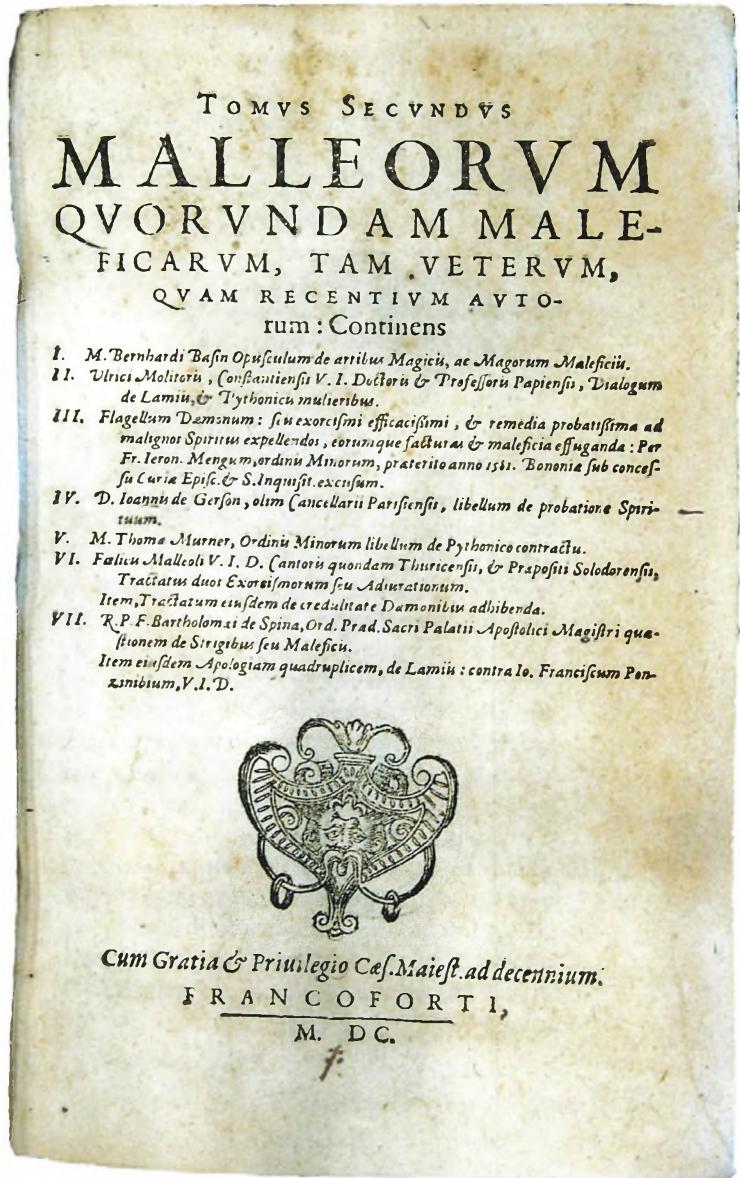 TOMVS SECVNDVS
MALLEORVM
QVORVNDAM MALE-
FICARVM, TAM VETERVM,
QVAM RECENTIVM AVTO-
rum : Continens
I. M. Bernhardi Baſin Opuſculum de artibus Magicis, ac Magorum Maleficiis.
II. Vlrici Molitoris, Conſtantienſis V. I. Doctoris & Profeſſoris Papienſis, Dialogum
de Lamiis, & Pythonicis mulieribus.
III. Flagellum Dæmonum : ſeu exorciſmi efficaciſſimi, & remedia probatiſſima ad
malignos Spiritus expellendos, eorumque facturas & maleficia effuganda : Per
Fr. Ieron. Mengum, ordinis Minorum, præterito anno 1581. Bononiæ ſub conceſ-
ſu Curiæ Epiſc. & S. Inquiſit. excuſum.
IV. D. Ioannis de Gerſon, olim Cancellarii Pariſienſis, libellum de probatione Spiri-
tuum.
V. M. Thomæ Murner, Ordinis Minorum libellum de Pythonico contractu.
VI. Fœlicis Malleoli V. I. D. Cantoris quondam Thuricenſis, & Præpoſiti Solodorenſis,
Tractatus duos Exorciſmorum ſeu Adiurationum.
Item, Tractatum eiuſdem de credulitate Dæmonibus adhibenda.
VII. R. P. F. Bartholomæi de Spina, Ord. Præd. Sacri Palatii Apoſtolici Magiſtri quæ-
ſtionem de Strigibus ſeu Maleficis.
Item eiuſdem Apologiam quadruplicem, de Lamiis : contra Io. Franciſcum Pon-
zinibium, V. I. D.
Cum Gratia & Priuilegio Cæſ. Maieſt. ad decennium.
FRANCOFORTI,
M. DC.